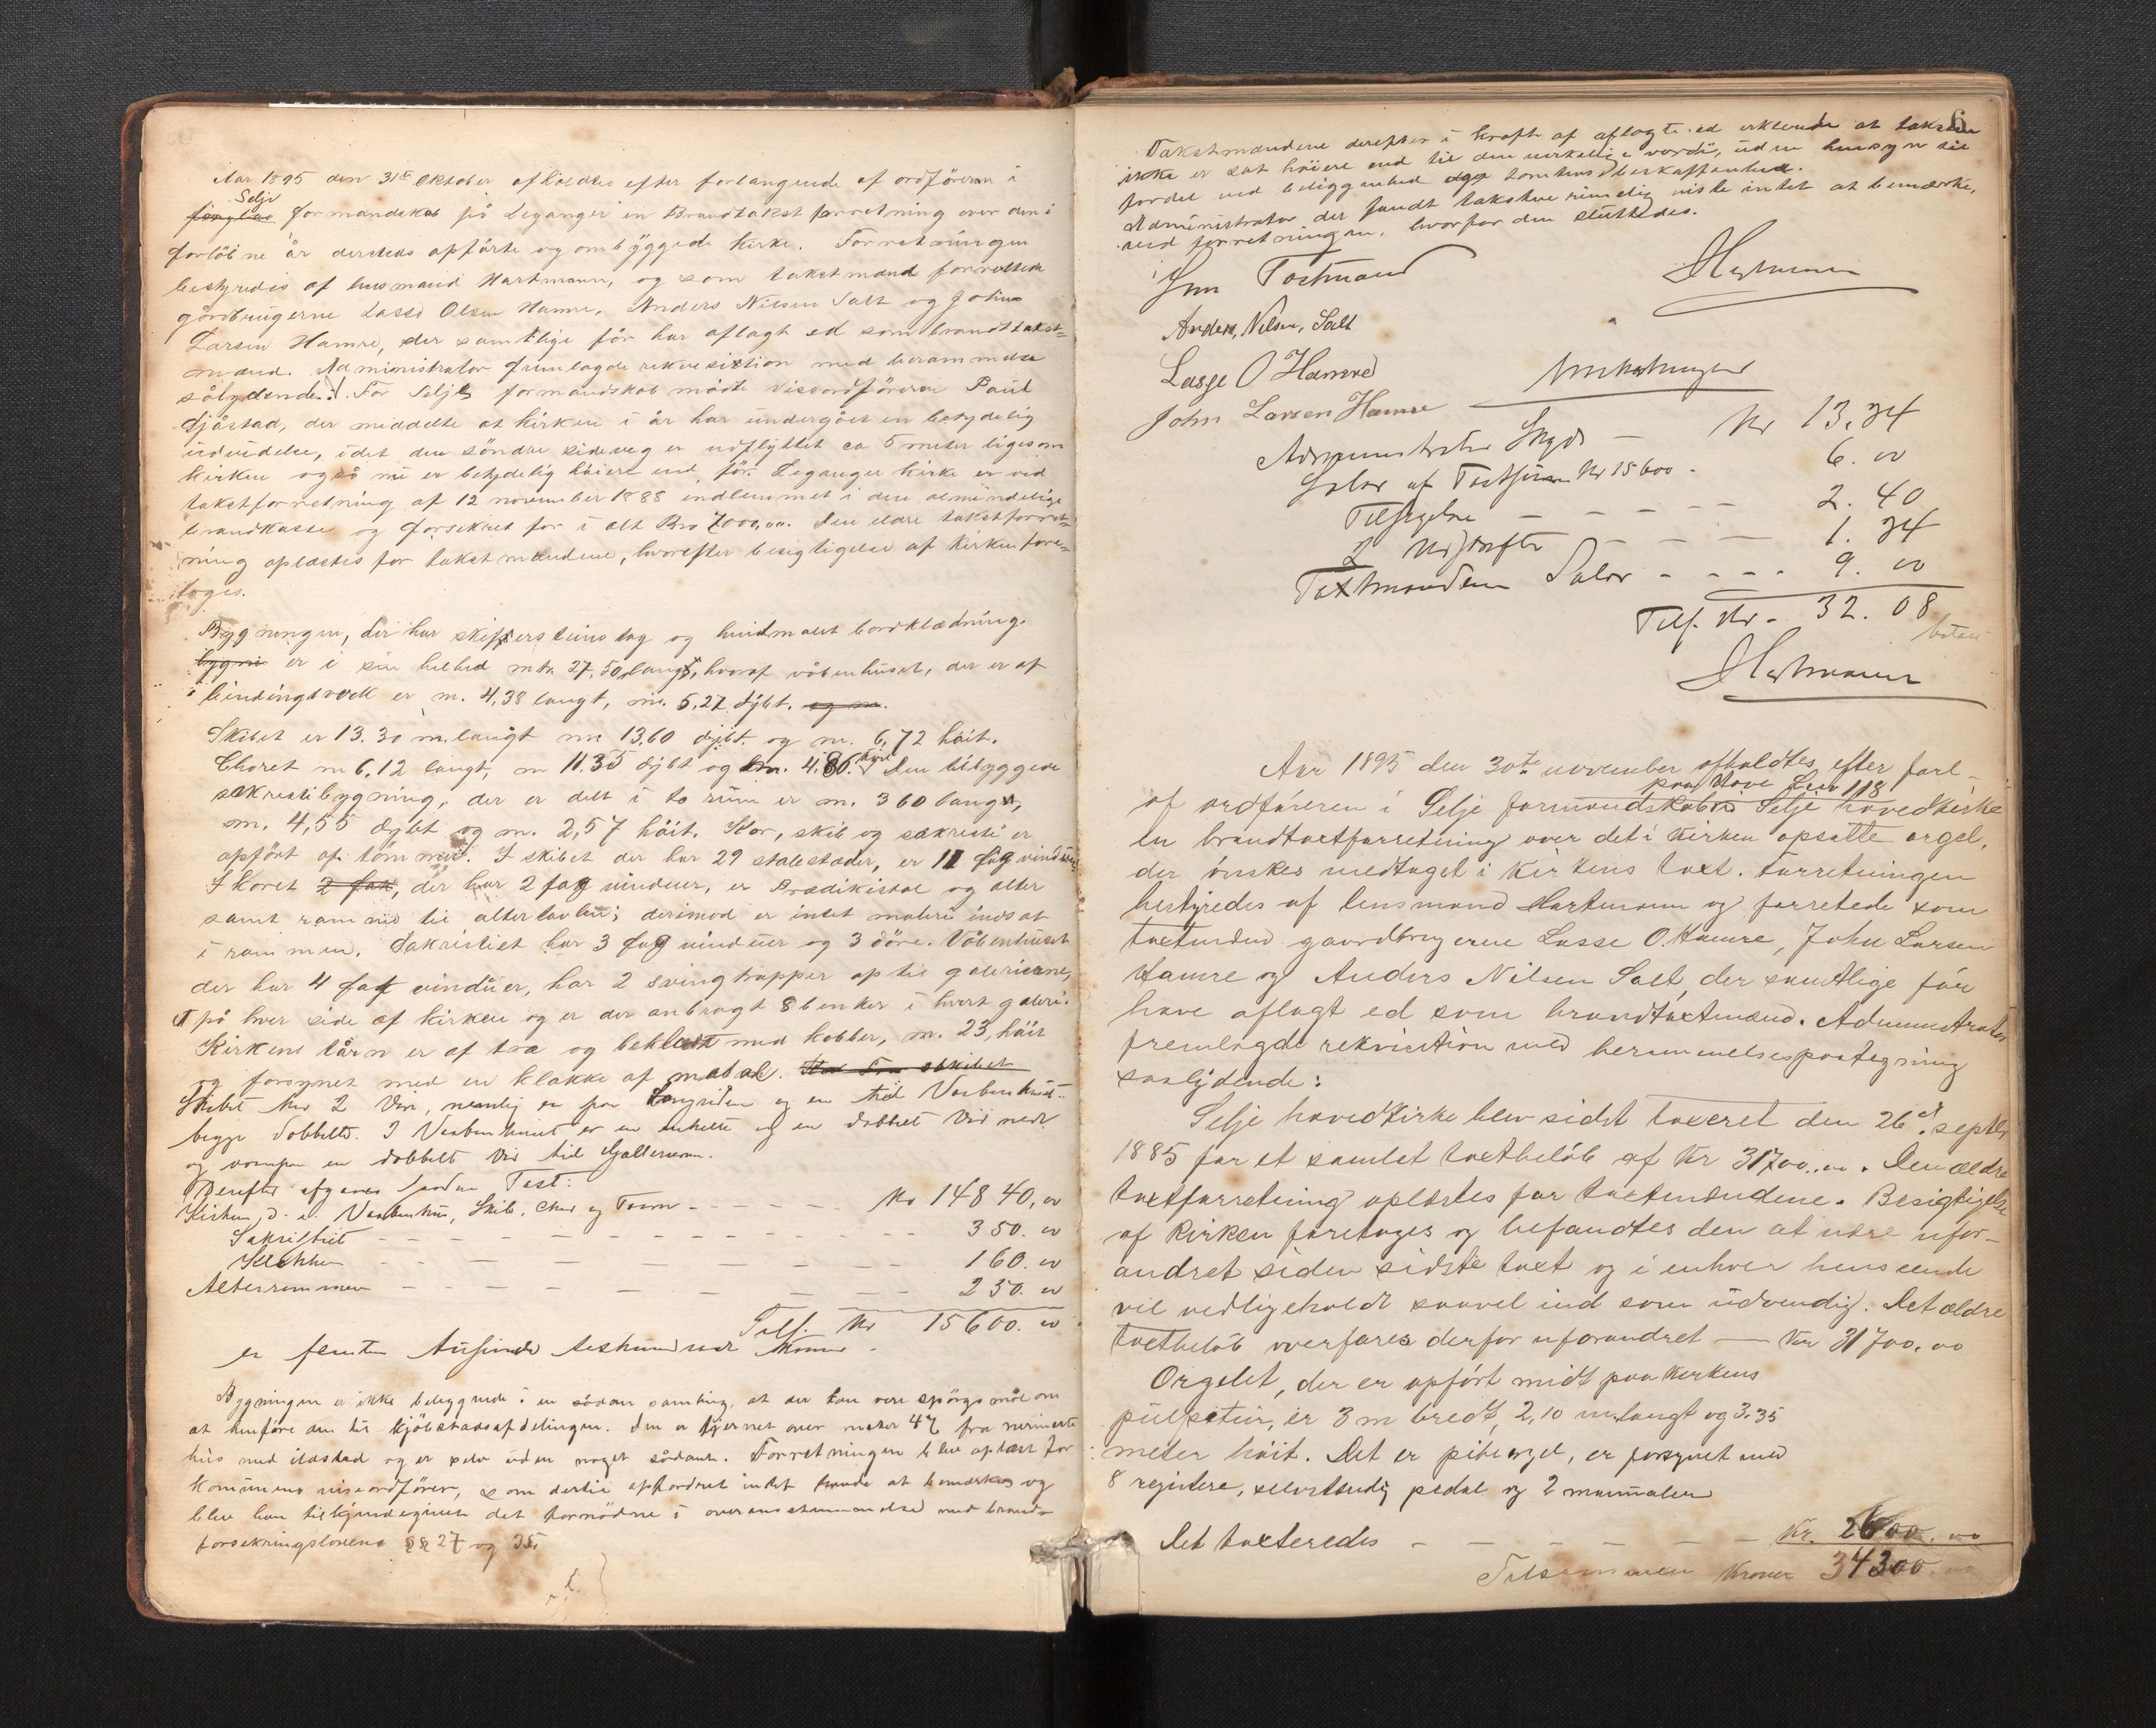 Aar 1895 den 31te Oktober afholdtes efter forlangende af ordföreren i
Selje
formandskab på Leganger en Brandtakst forretning over den i
forløbne år dersteds opførte og ombÿggede Kirke. Forretningen
bestyredes af lensmand Hartmann, og som takstmænd forrettede
gårdbrugerne Lasse Olsen Hamre, Anders Nilsen Salt og John
Larsen Hamre, der samtlige för har aflagt ed som brandtakst-
mænd. Administrator fremlagde rekvisition med berammelse
sålydende: For Selje formandskab mödte viceordföreren Paul
der meddelte at kirken i år har undergået en betydelig
udvidelse, idet den söndre sidevæg er udflyttet ca 5 meter ligesom
kirken også nu er betydelig höiere end för. Leganger kirke er ved
takstforretning af 12 november 1888 indlemmet i den almindelige
brandkasse og forsikret for i alt Kro 7000,00. Den eldre takstforret-
ning oplæstes for takstmændene, hvorefter besigtigelse af Kirken fore-
toges.
Bygningen, der har skifersteins tag og hvidmalet bordklædning
bygni er i sin helhed mtr 27,50 langt, hvoraf våbenhuset, der er af
bindingsverk er m. 4,38 langt, m. 5,27 dÿbt. og m.
Skibet er 13.30 m. langt m 13,60 dÿbt og m. 6,72 höit.
Choret m 6,12 langt, m 11.35 dÿbt og m. 4,86. höit Den tilbyggede
sakrestibygning, der er delt i to rum er m. 3 60 langt,
m. 4,55 dybt og m. 2,57 höit. Kor, skib og sakresti er
opfört af tömmer. I skibet der har 29 stolestader, er 11 fag vinduer
I koret 2 fak, der har 2 fag vinduer, er Prædikestol og alter
samt ramme til altertavlen; derimod er intet maleri indsat
i rammen. Sakristiet har 3 fag vinduer og 3 döre. Våbenhuset
der har 4 fag vinduer, har 2 svingtrapper op til galerierne,
et på hver side af kirken og er der anbragt 8 benker i hvert galeri.
Kirkens tårn er af træ og beklædt med kobber, m. 23, höit
og forsynet med en klokke af metal.
Skibet har 2 Döre, nemlig en paa Langsiden og en til Vaabenhuset
begge dobbelte. I Vaabenhuset er en enkelt og en dobbelt Dör nede
og oventil en dobbelt Dör til Galleriene.
Derefter afgaves saadan Taxt:
Kirken, d. e. Vaabenhus, Skib, Chor og Taarn - - - - - Kr 14840,00
Sakristiet - - - - - - - - 350.00
Klokken - - - - - - - 160.00
Alterrammen - - - - - - - 250.00
Tils. Kr 15600.00
er femten Tusinde sexhundrede Kroner.
Bygningen er ikke beliggende i en sådan samling, at der kan være spörgsmål om
at henföre den til kjöbstadsafdelingen. Den er fjernet over meter 47 fra nærmeste
hus med ildsted og er selv uden noget sådant. Forretningen blev oplæst for
kommunens viseordförer, som dertil opfordret intet havde at bemærke og
blev han tilkjendegivet det fornödne i overensstemmelse med brand-
forsikringslovens §§ 27 og 35.
6
Takstmændene derefter i kraft af aflagt ed erklærede at taksten
ikke er sat höiere end til den virkelige værdi, uden hensyn til
fordel ved beliggenhed eller tomtens beskaffenhed.
Administrator der fandt taksten rimelig viste intet at bemærke,
ved forretningen, hvorfor den sluttedes.
Hartmann
Anders, Nilsen, Salt
Lasse O Hamre
John Larsen Hamre
Administrator Skyds — Kr 13,34
Salær af Taxtsum Kr 15600 - 6.00
Tilsigelse - - - - - 2.40
2 Udskrifter - - - - 1.34
Taxtmændenes Salær - - - - 9.00
Tils. Kr. 32.08
betalt
Hartmann
Aar 1895 den 30te november afholdtes efter forl-
paa Hove Löbe 118
af ordföreren i Selje formandskab i Selje hovedkirke
en brandtaxtforretning over det i kirken opsatte orgel,
der önskes medtaget i Kirkens taxt. Forretningen
bestyredes af lensmand Hartmann og forrettede som
taxtmænd gaardbrugerne Lasse O. Hamre, John Larsen
Hamre og Anders Nilsen Salt, der samtlige för
have aflagt ed som brandtaxtmænd. Administrator
fremlagde rekvisition med berammelsespaategning
saalydende:
Selje hovedkirke blev sidst taxeret den 26de septbr
1885 for et samlet taxtbelöb af Kr 31700.00. Den ældre
taxtforretning oplæstes for taxtmændene. Besigtigelse
af Kirken foretoges og befandtes den at være ufor-
andret siden sidste taxt og i enhver henseende
vel vedligeholdt saavel ind som udvendig. Det ældre
taxtbelöb overföres derfor uforandret — Kr 31700.00
Orgelet, der er opfört midt paa Kirkens
pulpetur, er 3 m bredt, 2,10 m. langt og 3.35
meter höit. Det er pibeorgel, er forsynet med
8 registere, selvstændig pedal og 2 manualer
Det taxteredes - - - - - - Kr. 2600.00
Tilsammen Kroner 34300.00